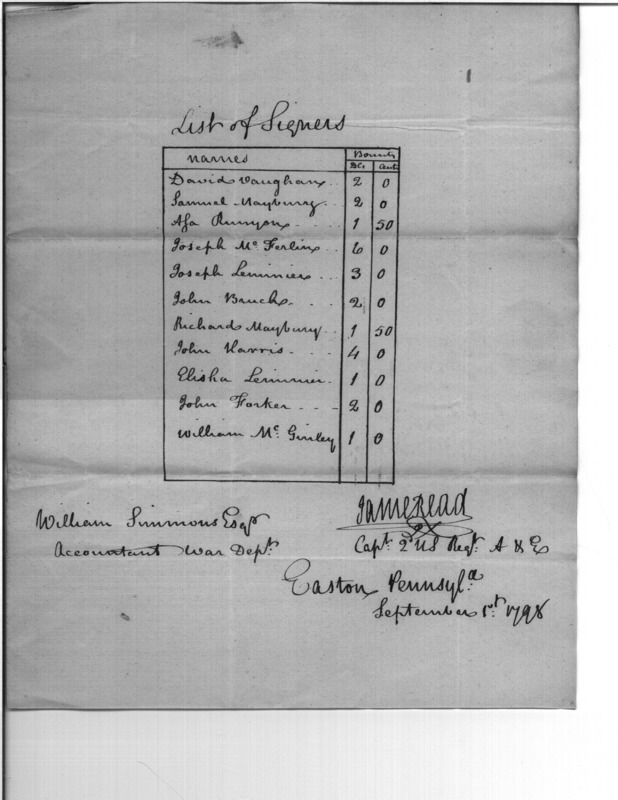 List of Signers
names Bounty
Dls Cents
David Vaughan 2 0
Samuel Mayburry 2 0
Asa Runyon 1 50
Joseph Mc Ferlin 6 0
Joseph Lemmier 3 0
John Bruch 2 0
Richard Maybury 1 50
John Harris 4 0
Elisha Lemmier 1 0
John Forker 2 0
William Mc Ginley 1 0
William Simmons Esqr
Accountant War Dept.
James Read
Capt. 2d US Regt. A & E
Easton Pennsyla
September 1st. 1798